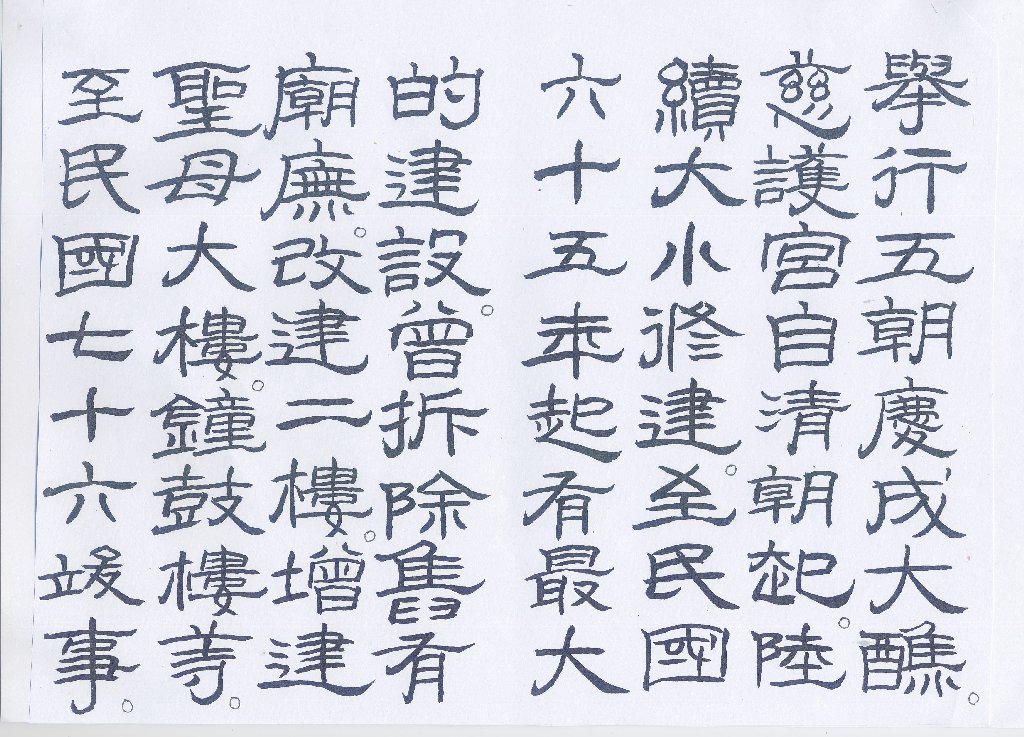 舉行五朝慶成大醮。
慈護宮自清朝起。陸
續大小修建。至民國
六十五年起有最大
的建設。曾拆除舊有
廟廡。改建二樓。增建
聖母大樓。鐘鼓樓等。
至民國七十六竣事。